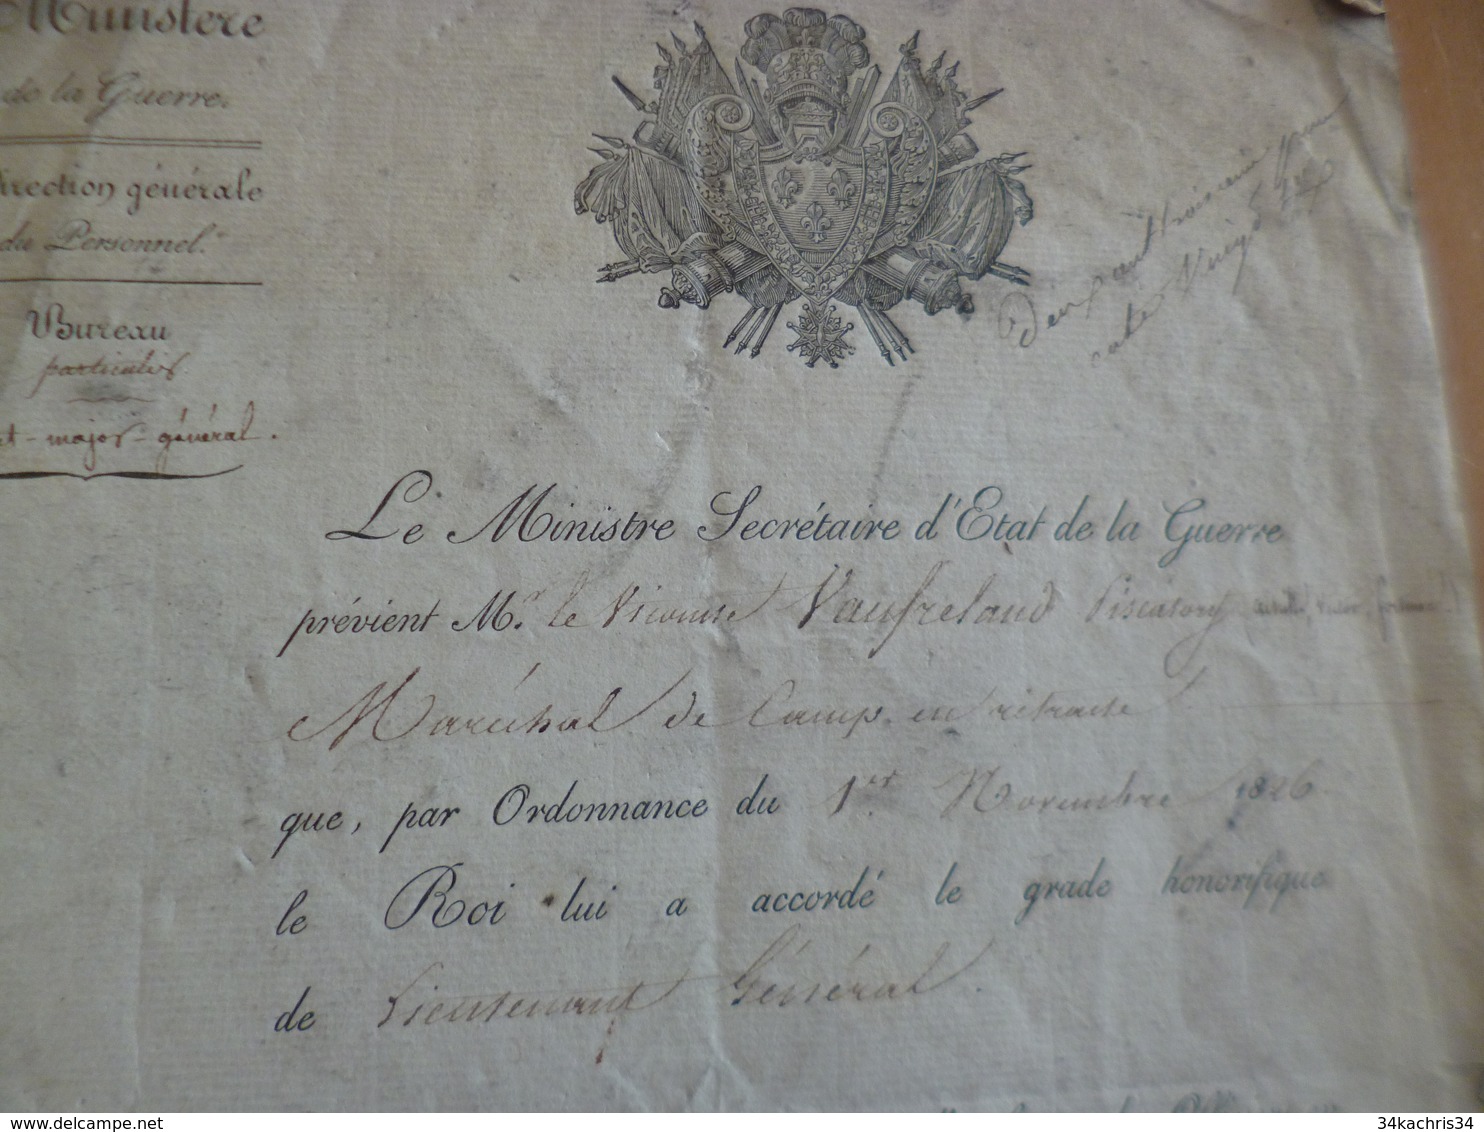 Ministère
de la Guerre.
Direction générale
du Personnel.
Bureau
particulier
et-major-général.
Le Ministre Secrétaire d'Etat de la Guerre
prévient Mr. le Vicomte Vaufreland Piscatory
Maréchal de Camp en retraite
que, par Ordonnance du 1er. Novembre 1826
le Roi lui a accordé le grade honorifique
de Lieutenant Général.
delcampe.net
34kachris34